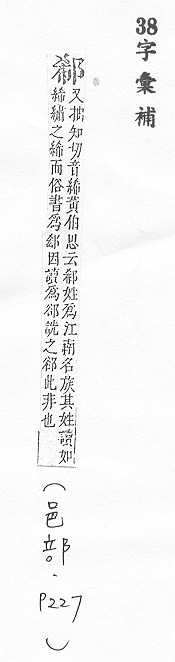 38字彙補
郗又拙知切音絺黃伯思云郗姓爲江南名族其姓讀如
絺繡之絺而俗書爲郄因讀爲郤詵之郤此非也
(邑部.P227)